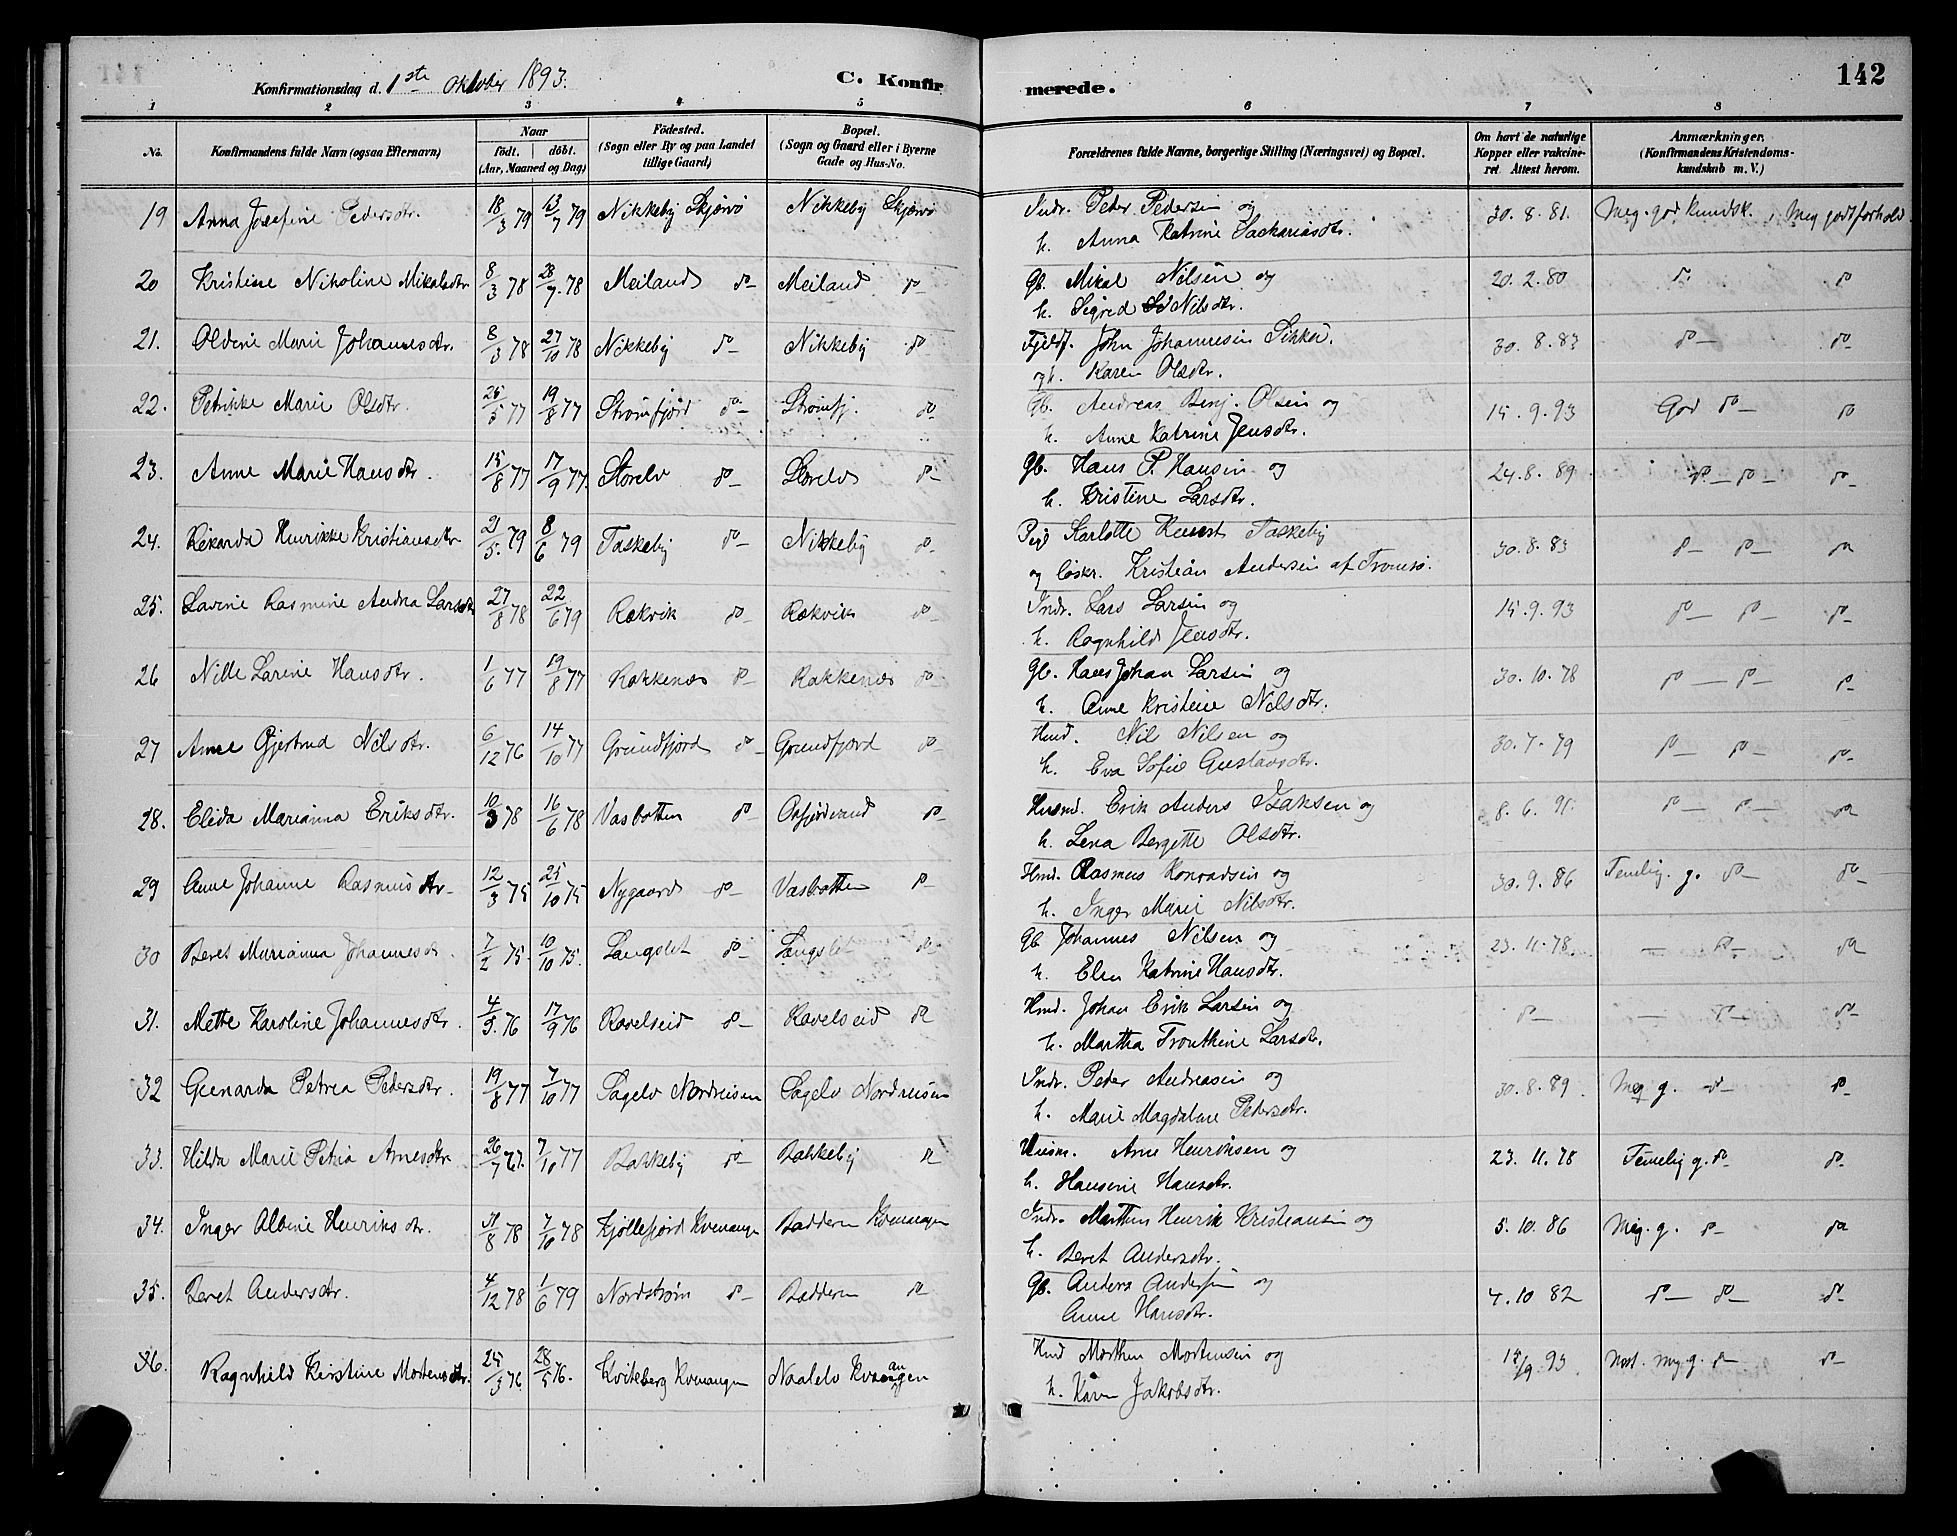 142
Konfirmationsdag d. 1ste Oktober 1893.
C. Konfirmerede.
1 2 3 4 5 6 7 8
No. | Konfirmandens fulde Navn (ogsaa Efternavn) | Naar födt. döbt. (Aar, Maaned og Dag) | Födested. (Sogn eller By og paa Landet tillige Gaard) | Bopæl. (Sogn og Gaard eller i Byerne Gade og Hus-No. | Forældrenes fulde Navne, borgerlige Stilling (Næringsvei) og Bopæl. | Om havt de naturlige Kopper eller vakcineret. Attest herom. | Anmærkninger. (Konfirmandens Kristendomskundskab m. V.)
19 Anna Josefine Pedersdtr. 18/3 79 13/7 79 Nikkeby Skjervö Nikkeby Skjervö Indr. Peder Pedersen og 30.8.81. Meg. god Kundsk., Meg godt forhold.
h. Anna Katrine Sackariasdtr.
20 Kristine Nikoline Mikalsdtr 8/3 78 28/7.78 Meiland do- Meiland do- Gb. Mikal Nilsen og 20.2.80 do do
h. Sigrid Nilsdtr.
21. Oldine Marie Johannesdtr. 8/3 78 27/10 78 Nikkeby do- Nikkeby do Fjeldf. John Johannesen Sikker. 30.8.83 do- do-
og h. Karen Olsdtr.
22. Petrikke Marie Olsdtr. 25/5 77 19/8 77 Strömfjord do- Strömfj. do- Gb. Andreas Benj. Olsen og 15.9.93 God do- do
h. Anne Katrine Jensdtr.
23. Anne Marie Hansdtr. 15/8 77 17/9 77. Storelv do- Storelv do- Gb. Hans P. Hansen og 24.8.89 do- do- do-
h. Kristine Larsdtr.
24. Rikarda Henrikke Kristiansdtr 21/5.79 8/6 79 Taskeby do- Nikkeby do- Pige Karlotte Taskeby 30.8.83 do- do- do
og löskr. Kristian Andersen af Tromsö.
25. Lavine Rasmine Andrea Larsdtr 27/8 78 22/6 79 Rækvik do- Rækvik do- Indr. Lars Larsen og 15.9.93 do- do- do-
h. Ragnhild Jensdtr.
26 Nille Larine Hansdtr. 1/6 77 19/8 77 Rakkenæs do- Rakkenæs do- Gb. Hans Johan Larsen og 30.10.78 do- do- do-
h. Anne Kristine Nilsdtr.
27 Anne Gjertrud Nilsdtr. 6/12 76 14/10 77 Grundfjord do- Grundfjord do- Hmd. Nils Nilsen og 30.7.79 do- do- do-
h. Eva Sofie Gustavsdtr.
28. Elida Marianna Eriksdtr. 10/3 78 16/6 78 Vasbotten do- do- Husmd. Erik Anders Isaksen og 8.6.91. do- do- do
h. Lena Bergette Olsdtr.
29 Anne Johanne Rasmusdtr- 12/3 75 25/10 75 Nygaard do- Vasbotten do- Hmd. Rasmus Konradsen og 30.9.86 Temelig. g. do- do-
h. Inger Marie Nilsdtr.
30 Beret Marianna Johannesdtr. 7/2 75. 10/10 75. Langslet do- Langslet do- Gb Johannes Nilsen og 23.11.78. - do- do
h. Elen Katrine Hansdtr.
31. Mette Karoline Johannesdtr. 4/5.76 17/9 76 Ravelseid do- Ravelseid do Hmd. Johan Erik Larsen og do- - do- do-
h. Martha Tronthine Larsdtr.
32 Gunarda Petrea Pedersdtr. 19/8 77 7/10 77 Sagelv Nordreisen Sagelv Nordreisen Indr. Peder Andreasen og 30.8.89. Meg g. do- do-
h. Marie Magdalene Pedersdtr.
33. Hilda Marie Petria Arnesdtr 26/7 77. 7/10 77 Bakkeby do- Bakkeby do Husm. Arne Henriksen og 23.11.78 Temelig g. do- do-
h. Hansine Hansdtr.
34. Inger Albine Henriksdtr. 31/8 78 7/10 78 Kjöllefjord Kvenangen Badderen Kvenangen Indr. Marthin Henrik Kristiansen og 5.10.86 Meg. g. do- do
h. Beret Andersdtr.
35. Beret Andersdtr. 4/12 78 1/6 79 Nordström do- Badderen do- Gb. Anders Andersen og 4.10 82 do- do- do-
Anne Hansdtr.
36. Ragnhild Kirstine Mortensdtr. 25/3 76 28/5 76. Kviteberg Kvenangen Naalelv Kvenangen Hmd Morthen Mortensen og 15/9.93 Nost. mg g. do- do-
h. Karen Jakobsdtr.